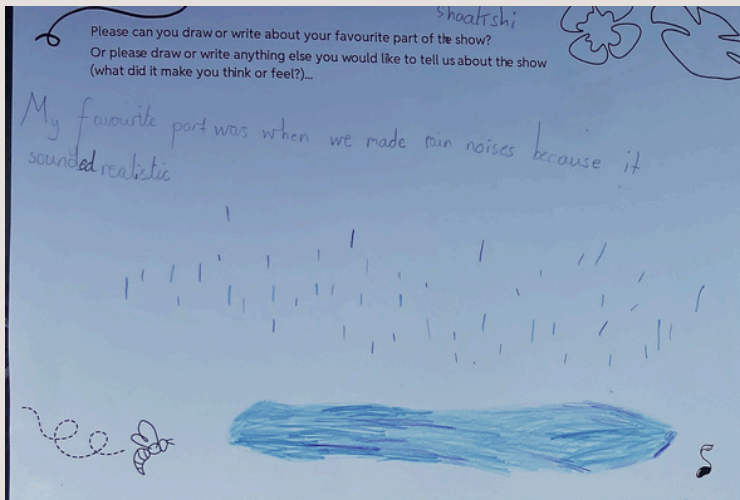 Shaakshi
Please can you draw or write about your favourite part of the show?
Or please draw or write anything else you would like to tell us about the show
(what did it make you think or feel?)...
My favourite part was when we made rain noises because it
sounded realistic